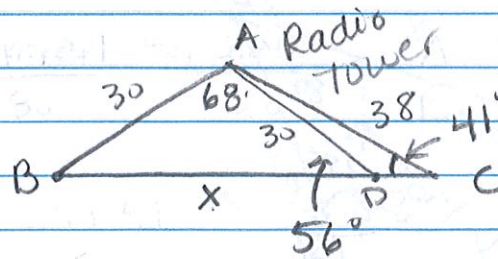 A Radio
Tower
30
68°
30
38
41°
B
X
D
C
56°